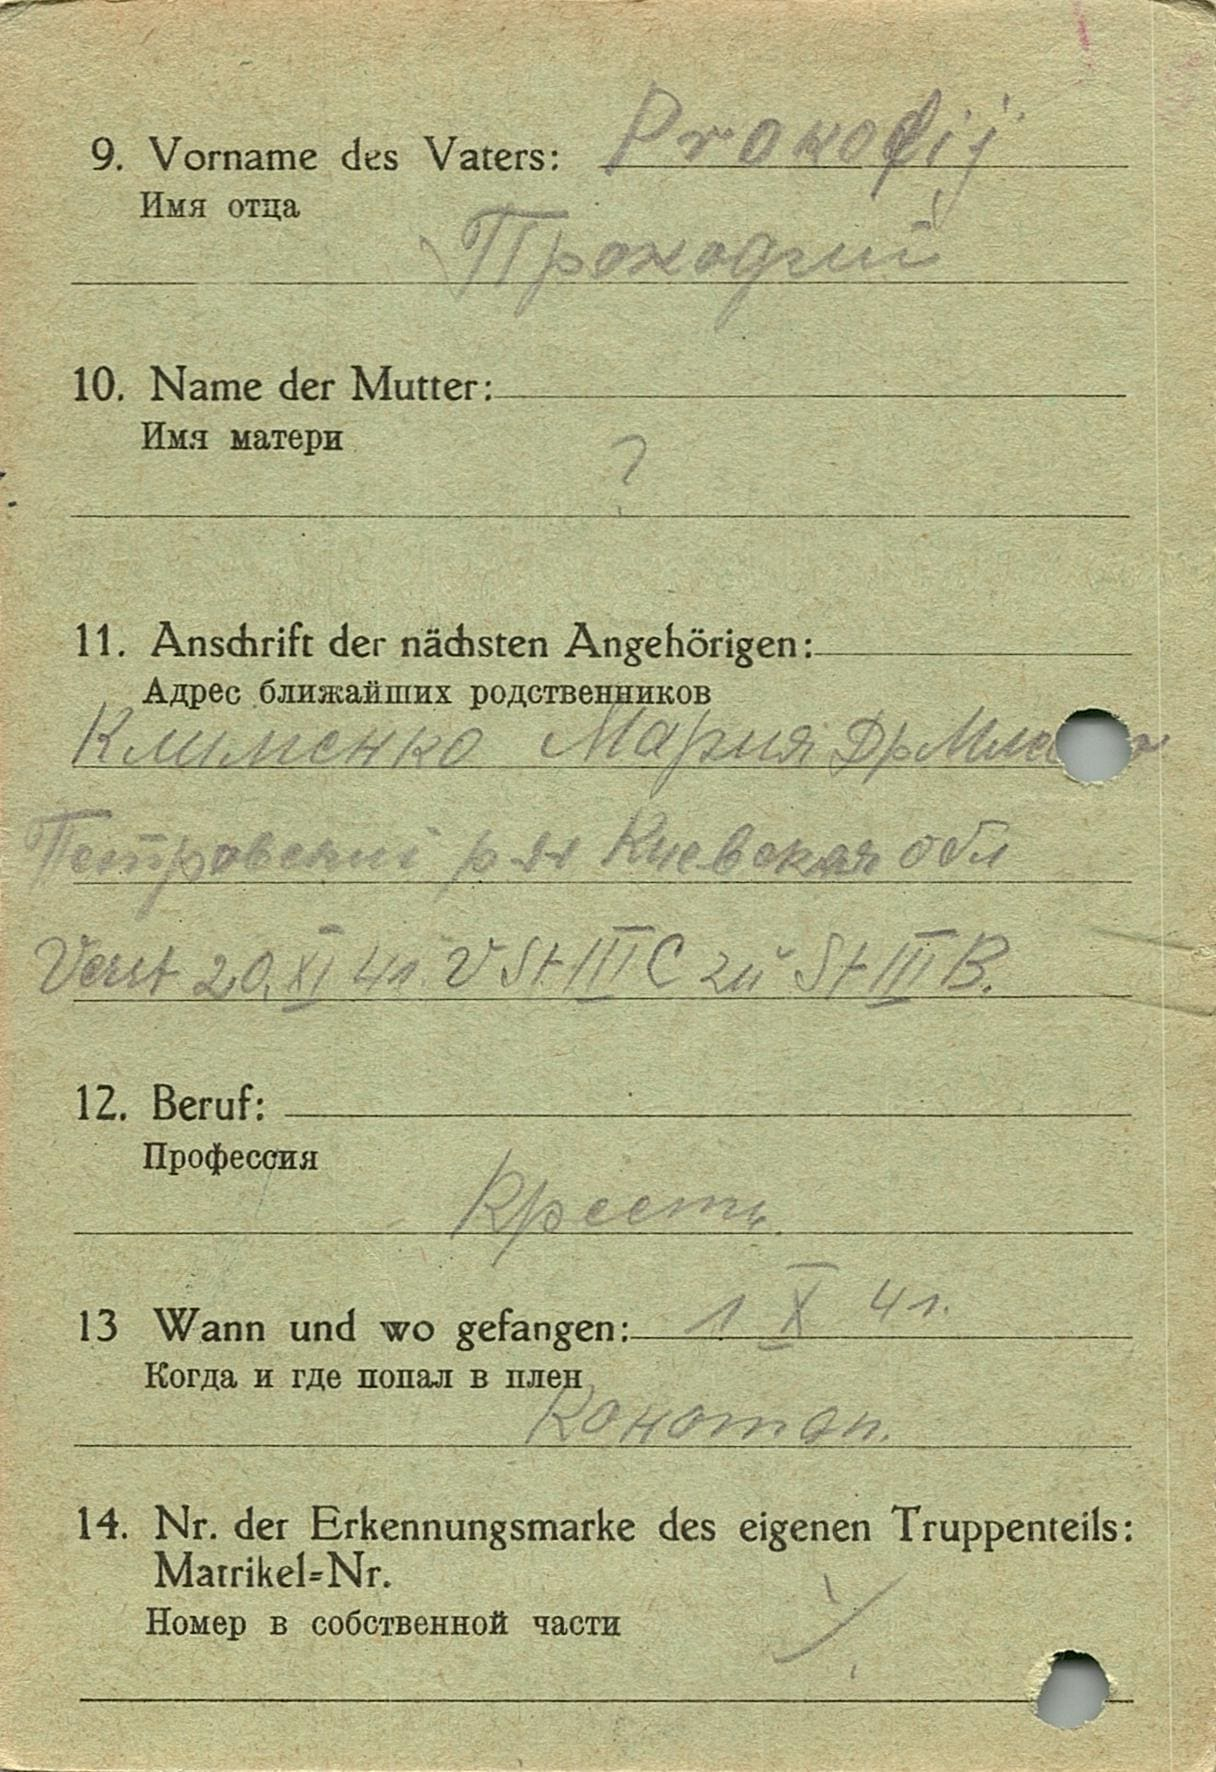 9. Vorname des Vaters: Prokofij
Имя отца
Прокофий
10. Name der Mutter:
Имя матери
?
11. Anschrift der nächsten Angehörigen:
Адрес ближайших родственников
Клименко Мария Др
Петровский р-н Киевская обл
20. XI 41. V St III C zu St III B.
12. Beruf:
Профессия
Крестн.
13 Wann und wo gefangen: 1 X 41.
Когда и где попал в плен
Конотоп.
14. Nr. der Erkennungsmarke des eigenen Truppenteils:
Matrikel=Nr.
Номер в собственной части